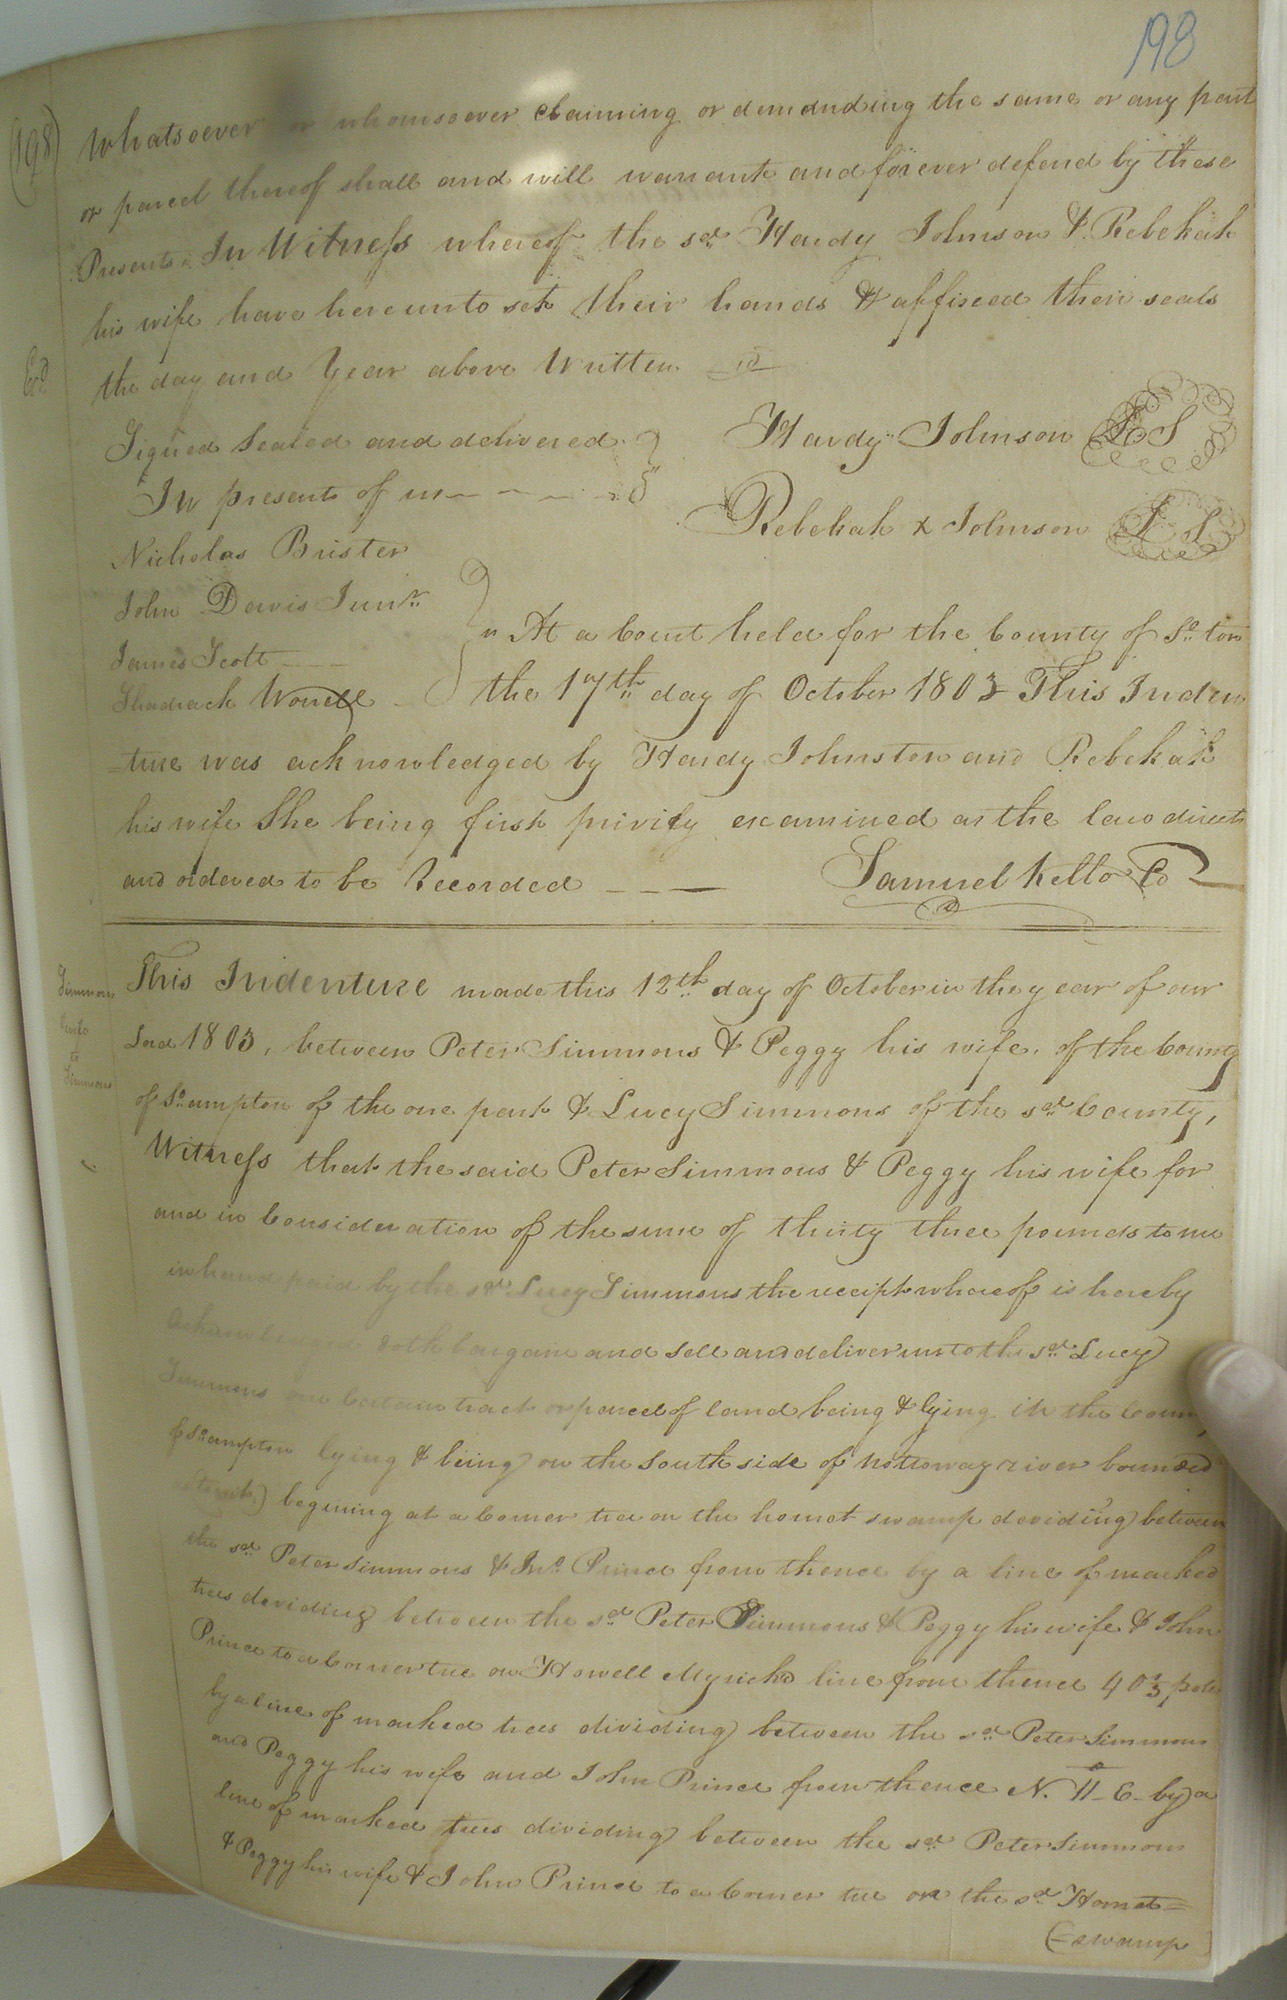 198
(198)
Whatsoever or whomsoever claiming or demanding the same or any part
or parcel thereof shall and will warrant and forever defend by these
Presents In Witness whereof the sd. Hardy Johnson & Rebekah
his wife have hereunto set their hands & affixed their seals
Exd
the day and Year above Written
Signed Sealed and delivered
In presents of us
Hardy Johnson LS
Rebekah x Johnson LS
Nicholas Brister
John Davis Junr.
James Scott
Shadrach Worrell
At a Court held for the County of So.ton
the 17th day of October 1803 This Inden
=ture was acknowledged by Hardy Johnston and Rebekah
his wife She being first privily examined as the law directs
and ordered to be Recorded
Samuel Kello CC
Simmons
& wife
to
Simmons
This Indenture made this 12th day of October in the year of our
Lord 1803, between Peter Simmons & Peggy his wife. of the County
of So.ampton of the one part & Lucy Simmons of the sd. County,
Witness that the said Peter Simmons & Peggy his wife for
and in Consideration of the sum of thirty three pounds to me
in hand paid by the sd. Lucy Simmons the receipt whereof is hereby
doth bargain and Sell and deliver unto the sd. Lucy
Simmons one Certain tract or parcel of land being & lying in the Coun
of So.ampton lying & being on the South side of Nottoway river bounded
begining at a Corner tree on the hornet swamp deviding between
the sd. Peter Simmons & Jno. Prince from thence by a line of marked
trees deviding between the sd. Peter Simmons & Peggy his wife & John
Prince to a Corner tree on Howell Myrick's line from thence 403 pole
by a line of marked trees dividing between the sd. Peter Simmons
and Peggy his wife and John Prince from thence N. 11 E by a
line of marked trees dividing between the sd. Peter Simmons
& Peggy his wife & John Prince to a Corner tree on the sd. Hornet=
(=swamp